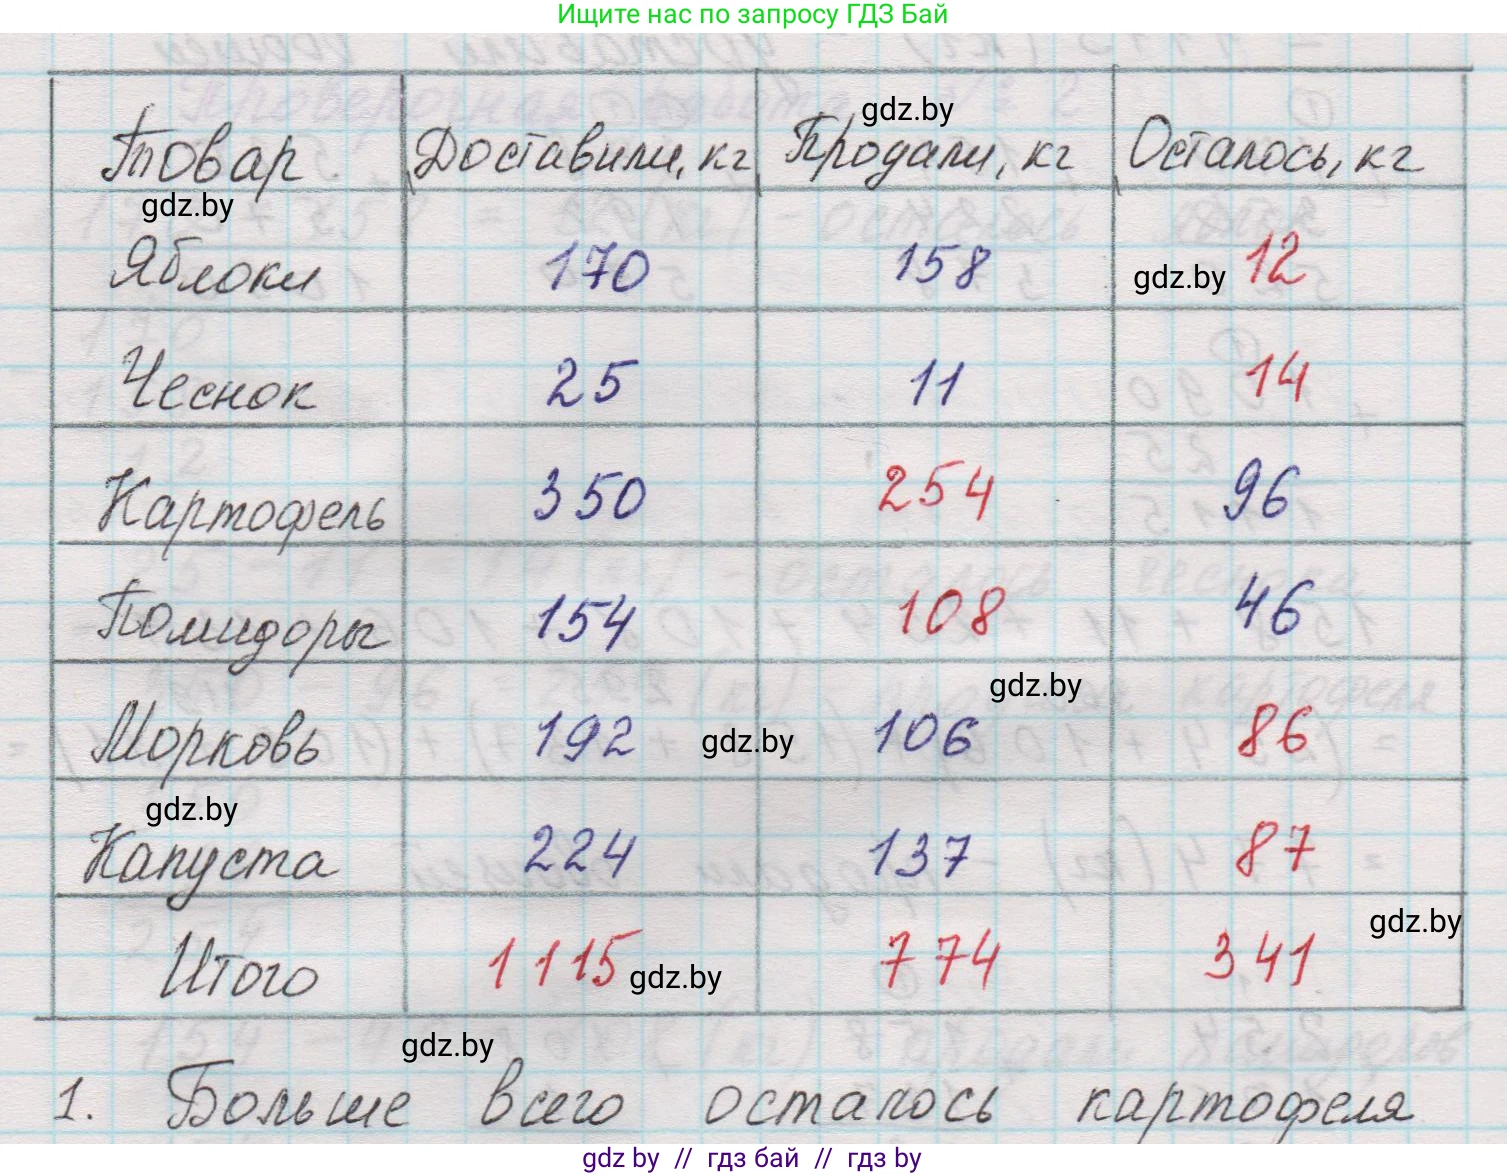 Ищите нас по запросу ГДЗ Бай
Товар Доставили, кг Продали, кг Осталось, кг
gdz.by
gdz.by
Яблоки 170 158 12
gdz.by
Чеснок 25 11 14
Картофель 350 254 96
Помидоры 154 108 46
gdz.by
Морковь 192 106 86
gdz.by
gdz.by
Капуста 224 137 87
gdz.by
Итого 1115 774 341
gdz.by
gdz.by
1. Больше всего осталось картофеля
gdz by // гдз бай // гдз by